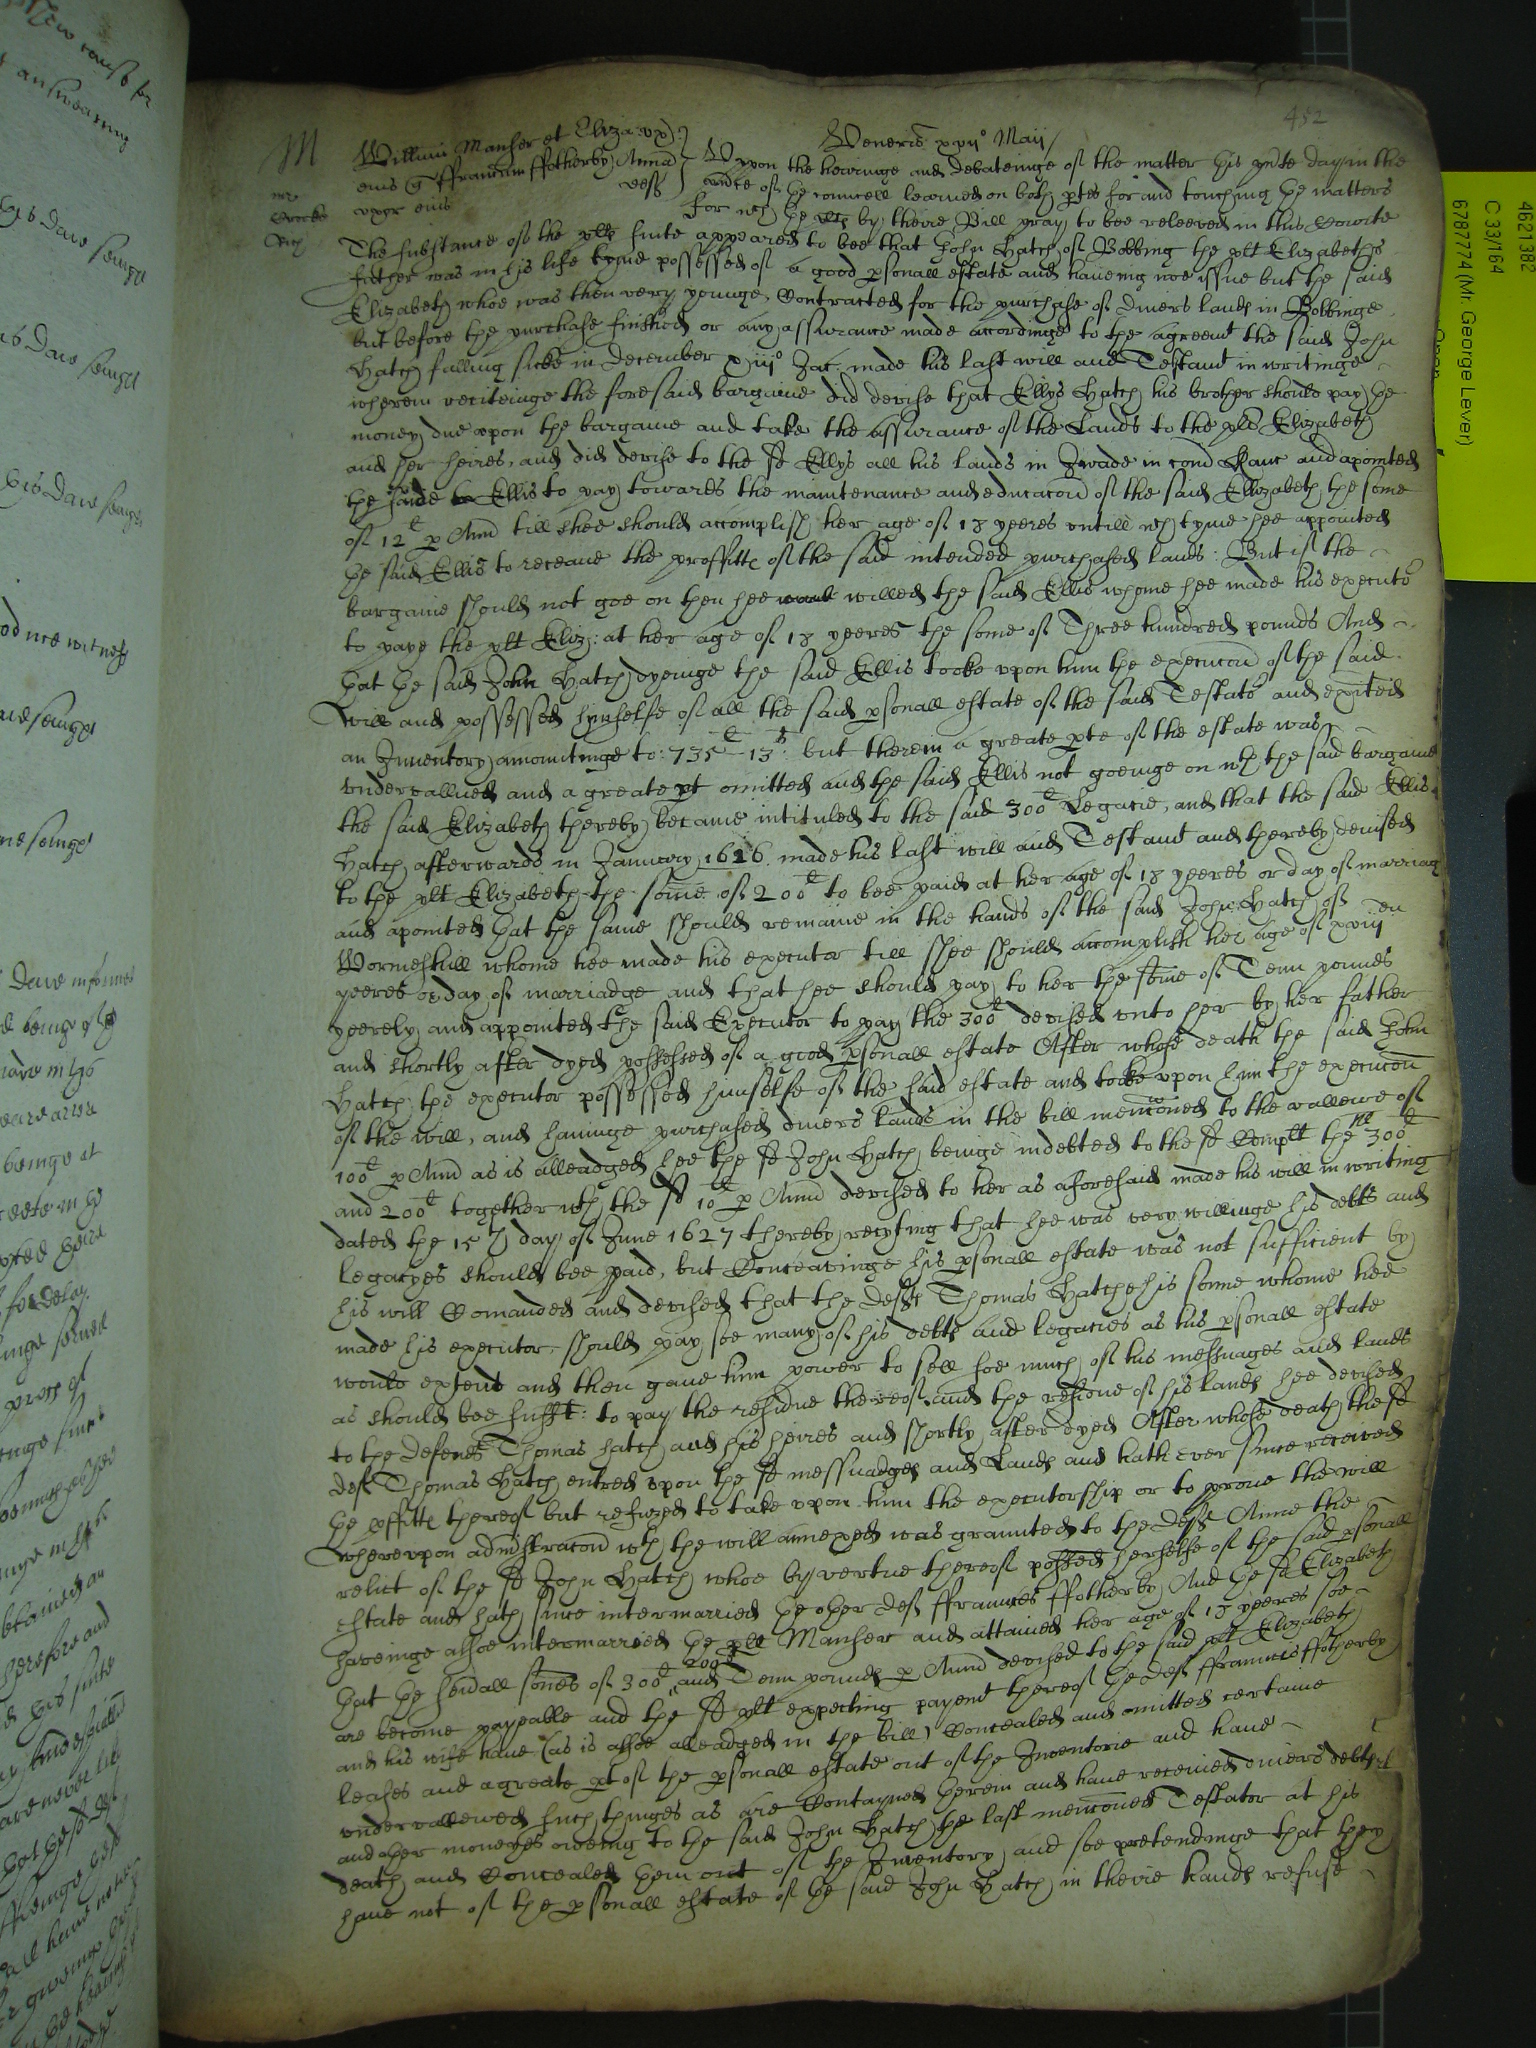 452
Veneris xxii° Maij
M
Willum Manser et Eliza: ux)
eius q ffranciscum ffotherby Anna
uxor eius deft
mr
Vppon the hearinge and debateinge of the matter this pnte day in the
pnce of the councell learned on both ptes for and touching the matters
for wch the plts by theire Bill pray to bee releeved in this Courte
The substance of the plts suite appeared to bee that John Hatch of Bobbing the plt Elizabethes
father was in his life tyme possessed of a good psonall estate and haueing noe issue but the said
Elizabeth whoe was then very younge, Contracted for the purchase of divers lands in Bobbinge
but before the purchase finished or any assurance made accordinge to the agreemt the said John
Hatch falling sicke in December xiii° Jac. made his last will and Testamt in writinge
wherein reciteinge the foresaid bargaine did devise that Ellys Hatch his brother should pay the
money due vpon the bargaine and take the assurance of the Lands to the plt Elizabeth
and her heires, and did devise to the sd Ellys all his lands in Iwade in com Kanc and apointed
the saide Ellis to pay towards the maintenance and educacon of the said Elizabeth the some
of 12l p Ann till shee should accomplish her age of 18 yeeres vntill wch tyme hee appointed
the said Ellis to receaue the proffitts of the said intended purchased lands: But if the
bargaine should not goe on then hee willed the said Ellis whome hee made his executor
to paye the plt Eliz: at her age of 18 yeeres the some of Three hundred pounds And
that the said John Hatch dyeinge the said Ellis tooke vpon him the execucon of the said
will and possessed himselfe of all the said psonall estate of the said Testator and exited
an Inuentory amountinge to: 735l 13s: but therein a greate pte of the estate was
vndervallued and a greate pt omitted and the said Ellis not goeinge on wth the said bargaine
the said Elizabeth thereby became intituled to the said 300l Legacie, and that the said Ellis
Hatch afterwards in January 1626 made his last will and Testamt and thereby devised
to the plt Elizabeth the some of 200l to bee paid at her age of 18 yeeres or day of marriag
and apointed that the same should remaine in the hands of the said John Hatch of
Wormeshill whome hee made his executor till shee should accomplish her age of xviijen
yeeres or day of marriadge and that hee should pay to her the some of Tenn pounds
yeerely and appointed the said Executor to pay the 300l devised vnto her by her father
and shortly after dyed possessed of a good psonall estate After whose death the said John
Hatch the executor possessed himselfe of the said estate and tooke vpon him the execucon
of the will, and hauinge purchased divers lands in the bill menconed to the vallewe of
100l p Ann as is alleadged hee the sd John Hatch beinge indebted to the sd Complt the 300l
and 200l together wth the sd 10l p Ann devised to her as aforesaid made his will in writing
dated the 15th day of June 1627 thereby recyting that hee was very willinge his debts and
legacyes should bee paid, but Conceavinge his psonall estate was not sufficient by
his will Comanded and devised that the deft Thomas Hatche his sonne whome hee
made his executor, should pay soe many of his debts and legacies as his psonall estate
would extend and then gaue him power to sell soe much of his messuages and lands
as should bee sufft: to pay the residue thereof and the residue of his lands hee devised
to the Defendt Thomas Hatch and his heires and shortly after dyed After whose death the sd
deft Thomas Hatch entred vpon the sd messuadges and Lands and hath ever since received
the pffitts thereof but refuzed to take vpon him the executorship or to proue the will
wherevpon adm̄istracon wth the will annexed was graunted to the deft Anne the
relict of the sd John Hatch whoe by vertue thereof possed herselfe of the said psonall
estate and hath since intermarried the other deft ffraunces ffotherby And the sd Elizabeth
haveinge alsoe intermarried the plt Manser and attained her age of 18 yeeres soe
that the seuerall somes of 300l 200l and Tenn pounds p Ann devised to the said plt Elizabeth
are become payeable and the sd plt expecting paymt thereof the deft ffrauncis ffotherby
and his wife haue (as is alsoe alleadged in the bill) Concealed and omitted certaine
leases and a greate pt of the psonall estate out of the Inventorie and haue
vndervallewed such thinges as are Contayned therein and haue received divers debts
and other moneyes oweing to the said John Hatch the last menconed Testator at his
death and Concealed them out of the Inventory and soe pretendinge that they
haue not of the psonall estate of the said John Hatch in theire hands refuse
4621382
C 33/164
6787774 (Mr. George Lever)